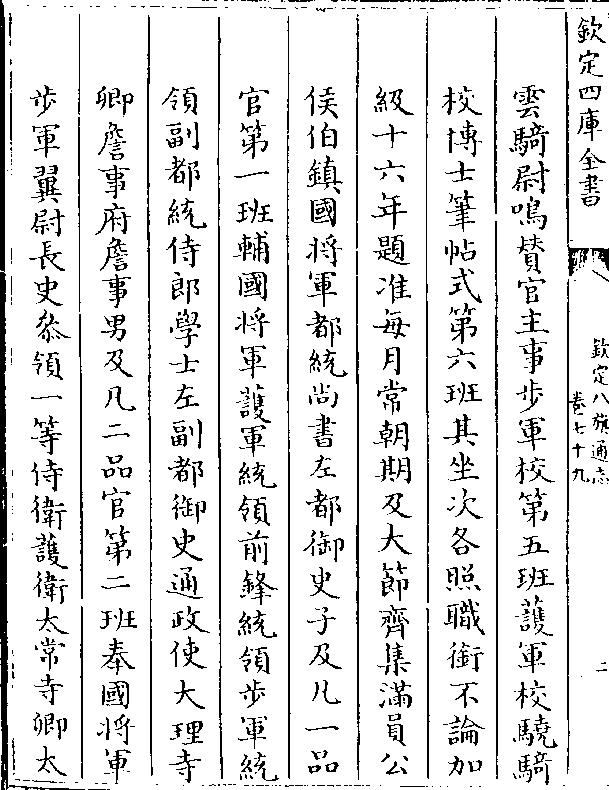 欽定四庫全書
欽定八旗通志
卷七十九
二
雲騎尉鳴賛官主事步軍校第五班護軍校驍騎
校博士筆帖式第六班其坐次各照職銜不論加
級十六年題准每月常朝期及大節齊集滿員公
侯伯鎮國将軍都統尚書左都御史子及凡一品
官第一班輔國将軍護軍統領前鋒統領步軍統
領副都統侍郎學士左副都御史通政使大理寺
卿詹事府詹事男及凡二品官第二班奉國將軍
步軍翼尉長史叅領一等侍衛護衛太常寺卿太